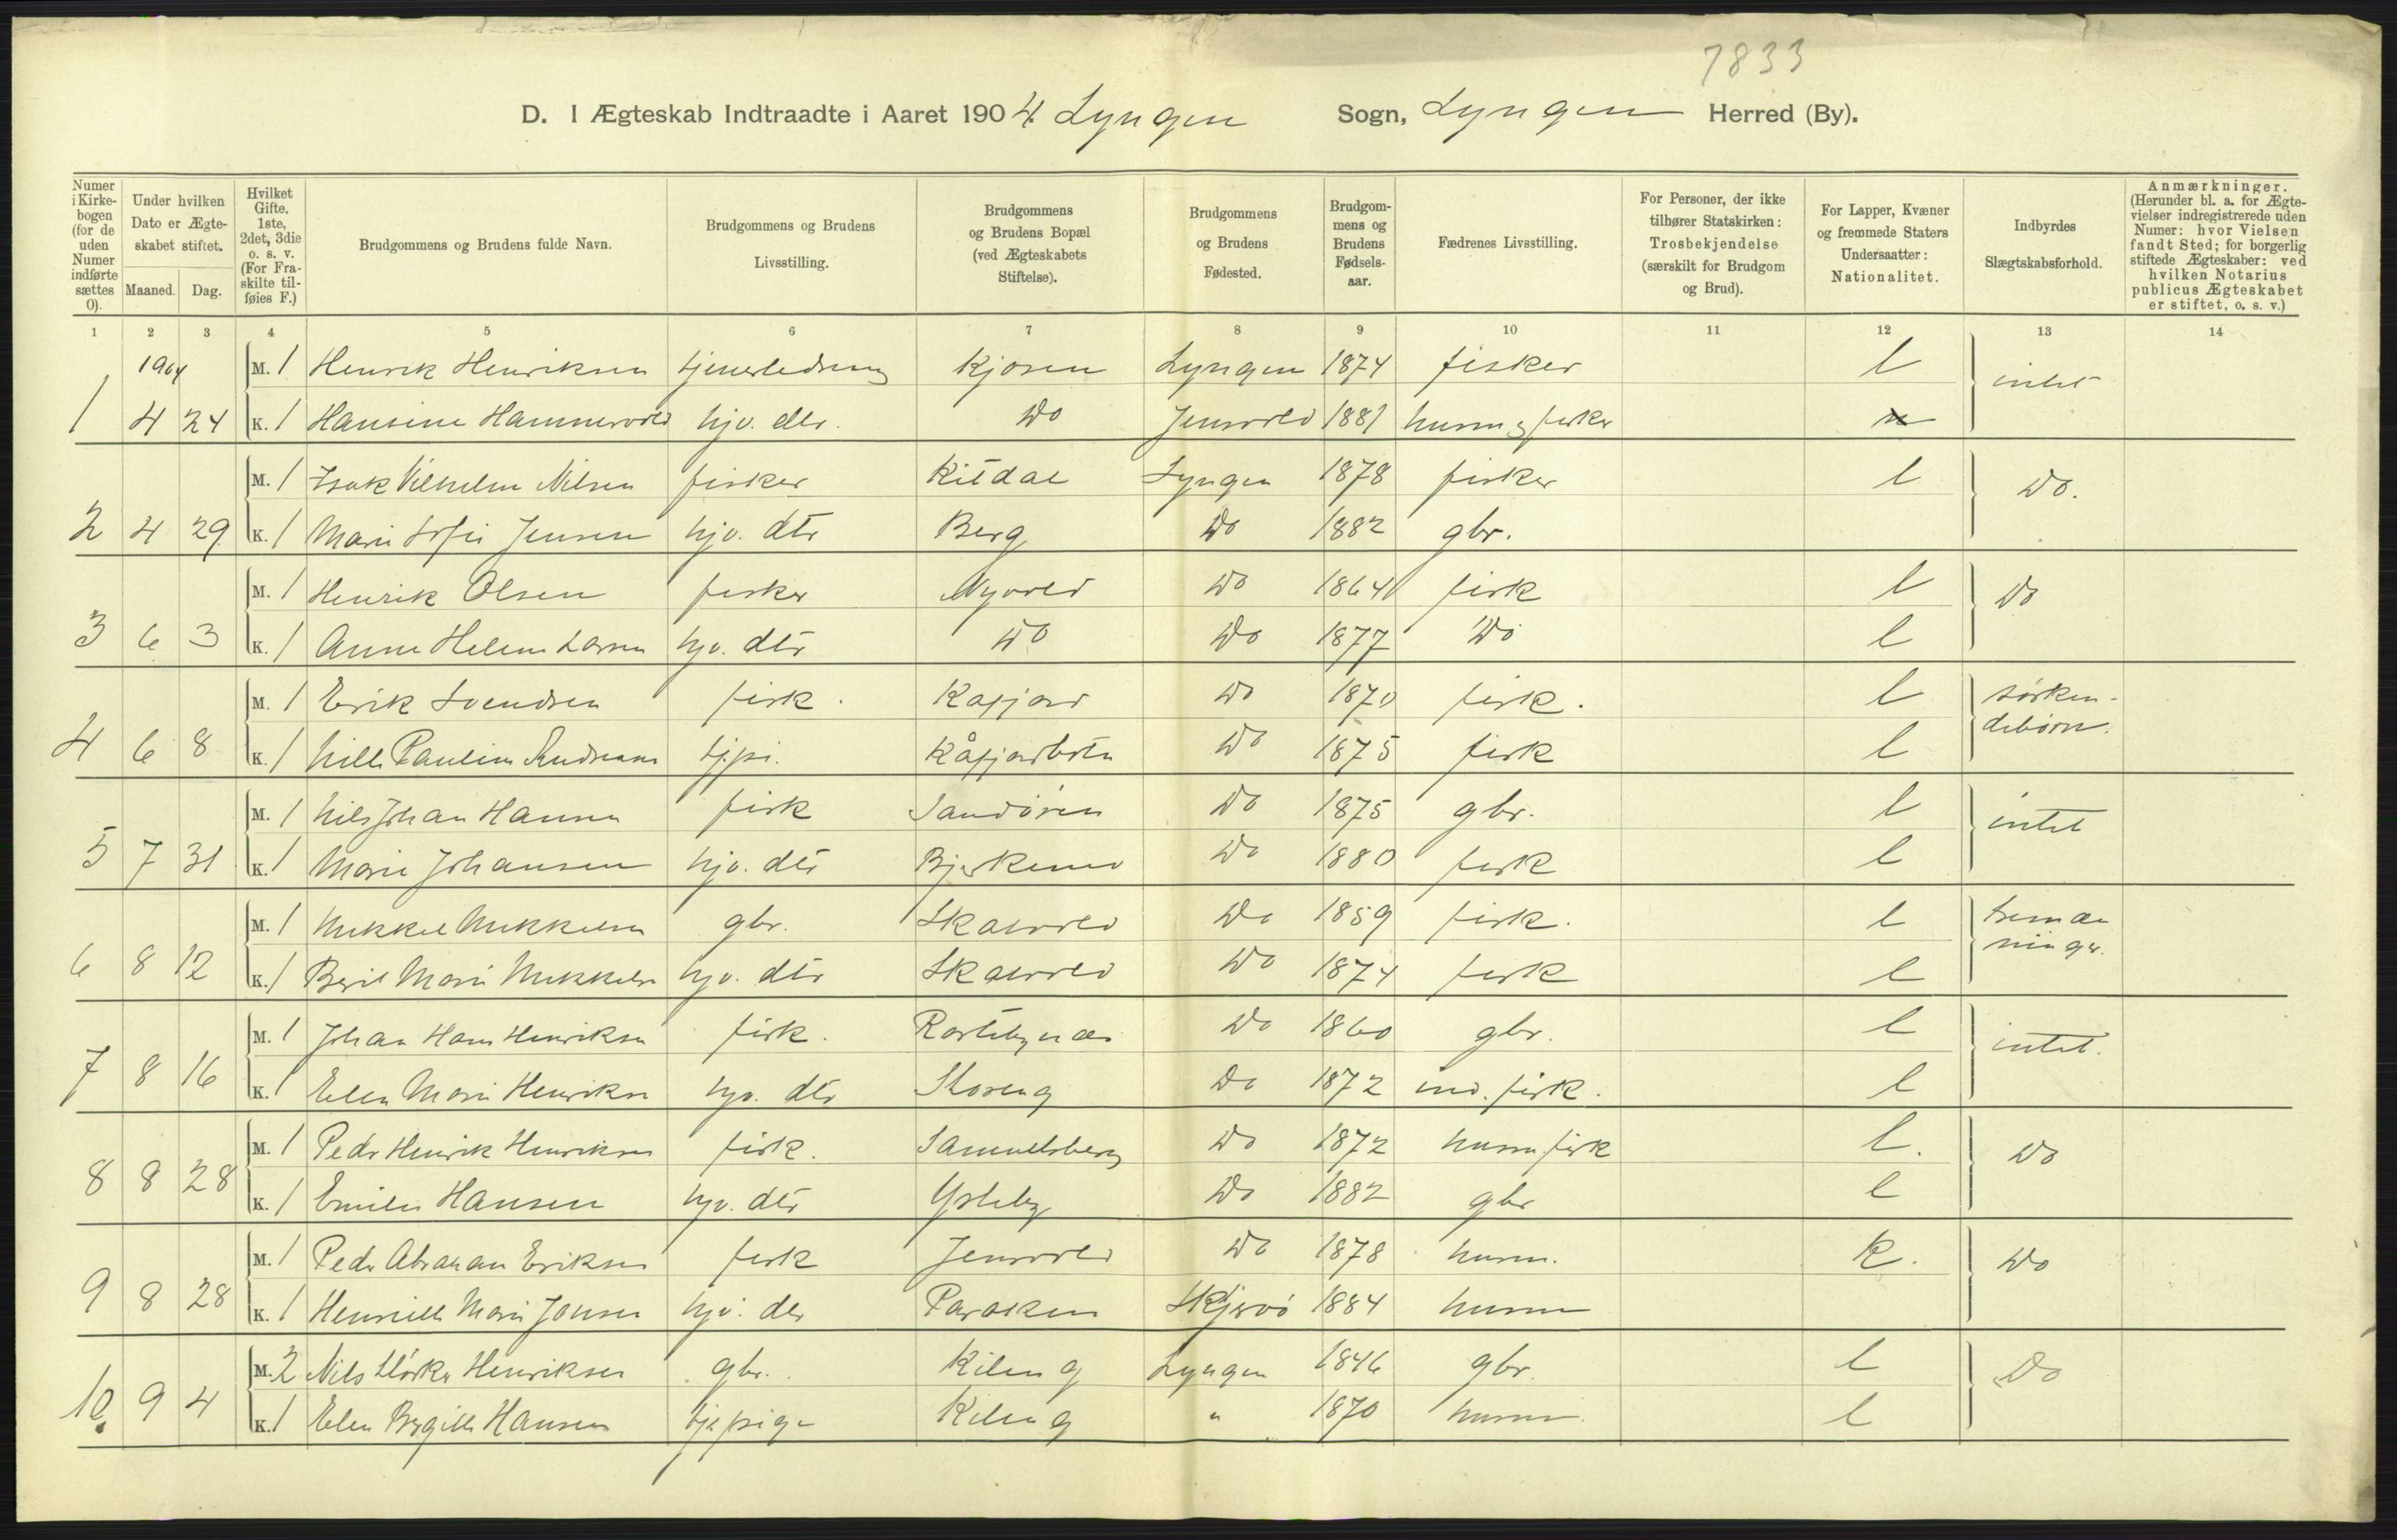 7833
D. I Ægteskab Indtraadte i Aaret 1904 Lyngen Sogn, Lyngen Herred (By).
Numer i Kirkebogen (for de uden Numer indførte sættes 0).
Under hvilken Dato er Ægteskabet stiftet.
Maaned. Dag.
Hvilket Gifte. 1ste, 2det, 3die o. s. v. (For Fraskilte tilføies F.)
Brudgommens og Brudens fulde Navn.
Brudgommens og Brudens Livsstilling.
Brudgommens og Brudens Bopæl (ved Ægteskabets Stiftelse).
Brudgommens og Brudens Fødested.
Brudgommens og Brudens Fødselsaar.
Fædrenes Livsstilling.
For Personer, der ikke tilhører Statskirken: Trosbekjendelse (særskilt for Brudgom og Brud).
For Lapper, Kvæner og fremmede Staters Undersaatter: Nationalitet.
Indbyrdes Slægtskabsforhold.
Anmærkninger. (Herunder bl. a. for Ægtevielser indregistrerede uden Numer: hvor Vielsen fandt Sted; for borgerlig stiftede Ægteskaber: ved hvilken Notarius publicus Ægteskabet er stiftet, o. s. v.)
1 2 3 4 5 6 7 8 9 10 11 12 13 14
1904 M. 1 Henrik Henriksen Kjosen Lyngen 1874 fisker l intet
1 4 24 K. 1 Hansine Hammervold hjv. dtr. Do Jensvold 1881 husm & fisker
M. 1 Isak Vilhelm Nilsen fisker Kitdal Lyngen 1878 fisker l Do.
2 4 29 K. 1 Marie Sofie Jensen hjv. dtr Berg Do 1882 gbr.
M. 1 Henrik Olsen fisker Nyvold Do 1864 fisk l Do
3 6 3 K. 1 Anne Helene Larsen hjv. dtr Do Do 1877 Do l
M. 1 Erik Svendsen fisk. Kafjord Do 1870 fisk. l sösken-
4 6 8 K. 1 Nille Pauline Andreasen tj.pi. Kåfjordbotn Do 1875 fisk l debörn.
M. 1 Nils Johan Hansen fisk Sandören Do 1875 gbr. l intet
5 7 31 K. 1 Marie Johansen hjv. dtr Do 1880 fisk l
M. 1 Mikkel Mikkelsen gbr. Skaivold Do 1859 fisk. l tremæn
6 8 12 K. 1 Berit Marie Mikkelsen hjv. dtr Skaivold Do 1874 fisk l ninger.
M. 1 Johan Hans Henriksen fisk. Rastebynæs Do 1860 gbr. l intet.
7 8 16 K. 1 Elen Marie Henriksen hjv. dtr Storeng Do 1872 ind. fisk. l
M. 1 Peder Henrik Henriksen fisk. Samuelsberg Do 1872 husm. fisk l. Do
8 8 28 K. 1 Emilie Hansen hjv. dtr Ysteby Do 1882 gbr l
M. 1 Peder Abraham Eriksen fisk Jensvold Do 1878 husm. k. Do
9 8 28 K. 1 Henriette Marie Jonsen hjv. dtr Skjervö 1884 husm
M. 2 Nils Henriksen gbr. Kileng Lyngen 1846 gbr. l Do
10. 9 4 K. 1 Elen Birgitte Hansen tje pige Kileng " 1870 husm. l